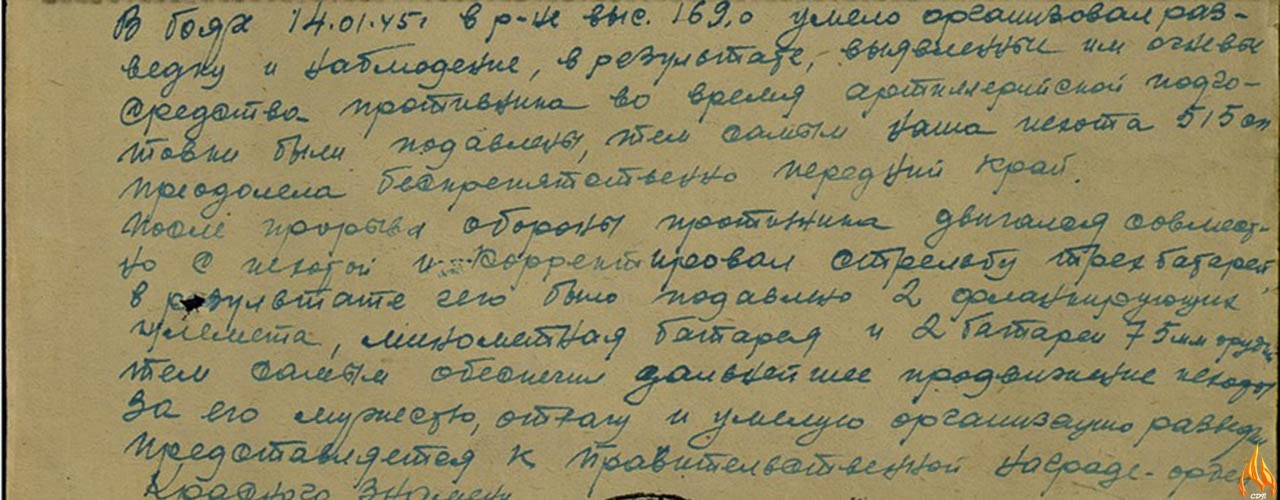 В боях 14.01.45г в р-не выс. 169,0 умело организовал раз-
ведку и наблюдение, в результате, выявленные им огневы
средства противника во время артиллерийской подго-
товки были подавлены, тем самым наша пехота 515 сп
преодолела беспрепятственно передний край.
После прорыва обороны противника двигался совмест-
но с пехотой и корректировал стрельбу трех батарей,
в результате чего было подавлено 2 фланкирующих
пулемета, минометная батарея и 2 батареи 75 мм орудий
тем самым обеспечил дальнейшее продвижение пехоты
За его мужество, отвагу и умелую организацию разведки
представляется к правительственной награде - орде
Красного Знамени
CDR